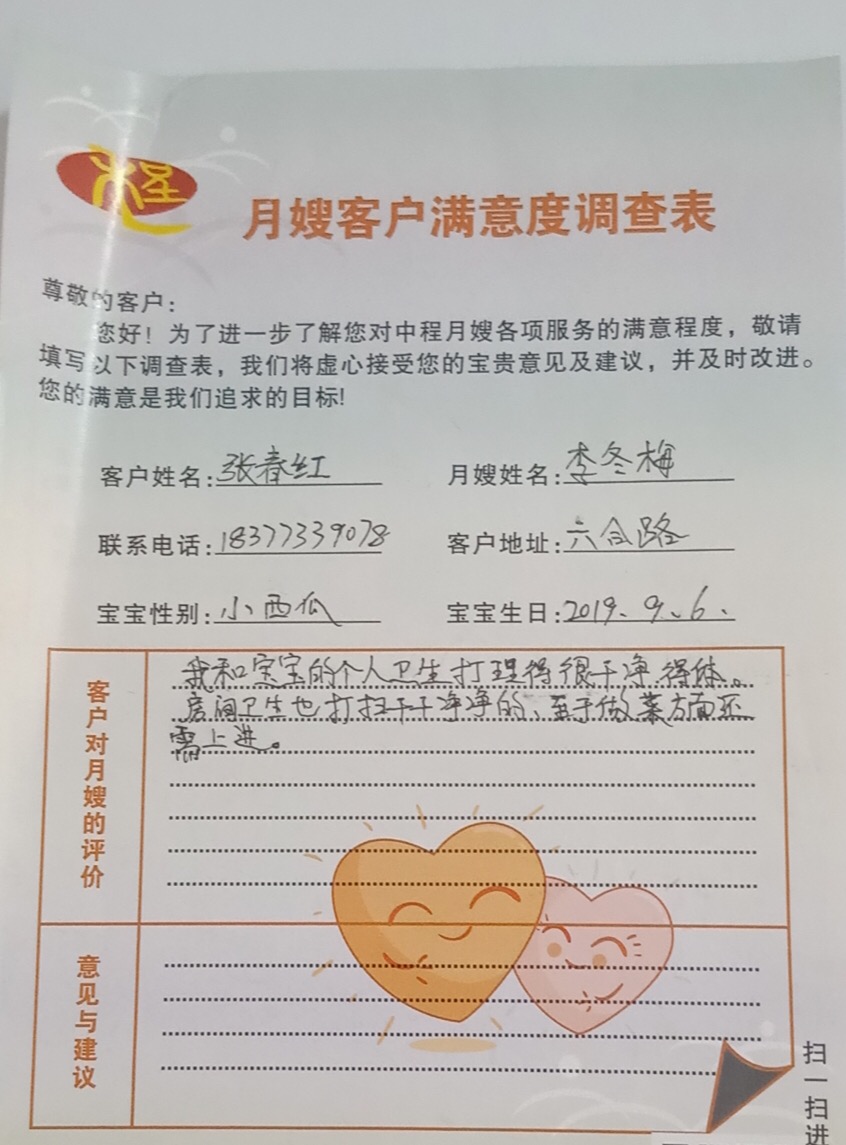 月嫂客户满意度调查表
尊敬的客户:
您好!为了进一步了解您对中程月嫂各项服务的满意程度,敬请
填写以下调查表,我们将虚心接受您的宝贵意见及建议,并及时改进。
您的满意是我们追求的目标!
客户姓名:张春红 月嫂姓名:李冬梅
联系电话:18377339078 客户地址:六合路
宝宝性别:小西瓜 宝宝生日:2019.9.6.
客户对月嫂的评价
我和宝宝的个人卫生打理得很干净得体。
房间卫生也打扫干干净净的、至于做菜方面还
需上进。
意见与建议
扫一扫进